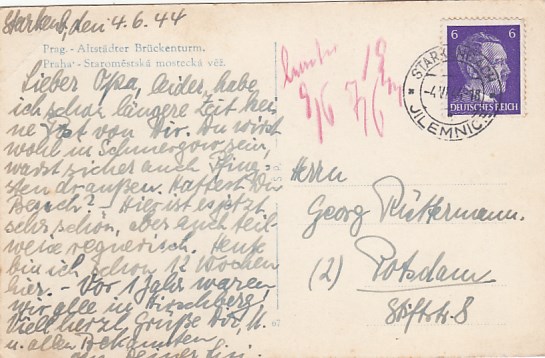 Starkenb, den 4.6.44
Prag - Altstädter Brückenturm.
Praha - Staroměstská mostecká věž.
Lieber Opa, leider habe
ich schon längere Zeit kei-
ne Post von Dir. Du wirst
wohl in Schmergow sein,
warst sicher auch Pfing-
sten draußen. Hattest Du
Besuch? - Hier ist es jetzt
sehr schön, aber auch teil-
weise regnerisch. Heute
bin ich schon 12 Wochen
hier. - Vor 1 Jahr waren
wir alle in Hirschberg,
Viel herzl. Grüße
u. allen Bekannten
9/6 7/6
STARKENBACH
-4.VI.44-18
JILEMNICE
6 6
DEUTSCHES REICH
Herrn
Georg Rüttermann.
(2) Potsdam
Stiftstr. 8